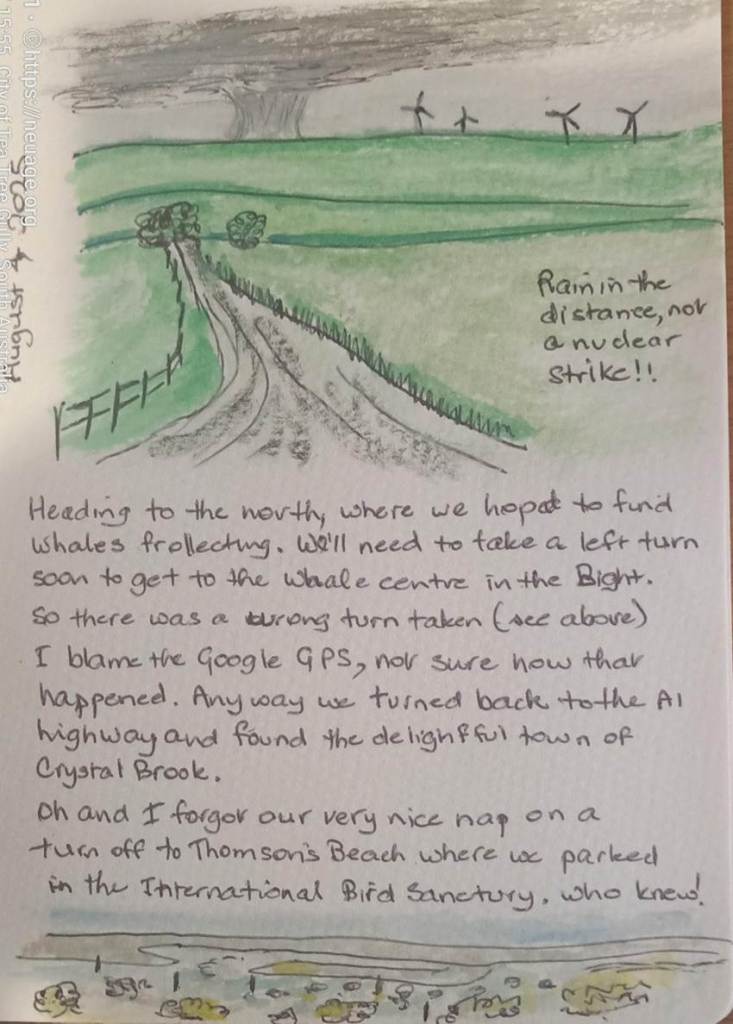 Rain in the
distance, not
a nuclear
strike!!
August 4 2025
Heading to the north, where we hope to find
whales frollecting. We'll need to take a left turn
soon to get to the whale centre in the Bight.
So there was a wrong turn taken (see above)
I blame the Google GPS, not sure how that
happened. Anyway we turned back to the A1
highway and found the delightful town of
Crystal Brook.
Oh and I forgot our very nice nap on a
turn off to Thomson's Beach where we parked
in the International Bird Sanctury. Who knew!
©https://neuage.org
15:55 City of Tea Tree Gully, South Australia